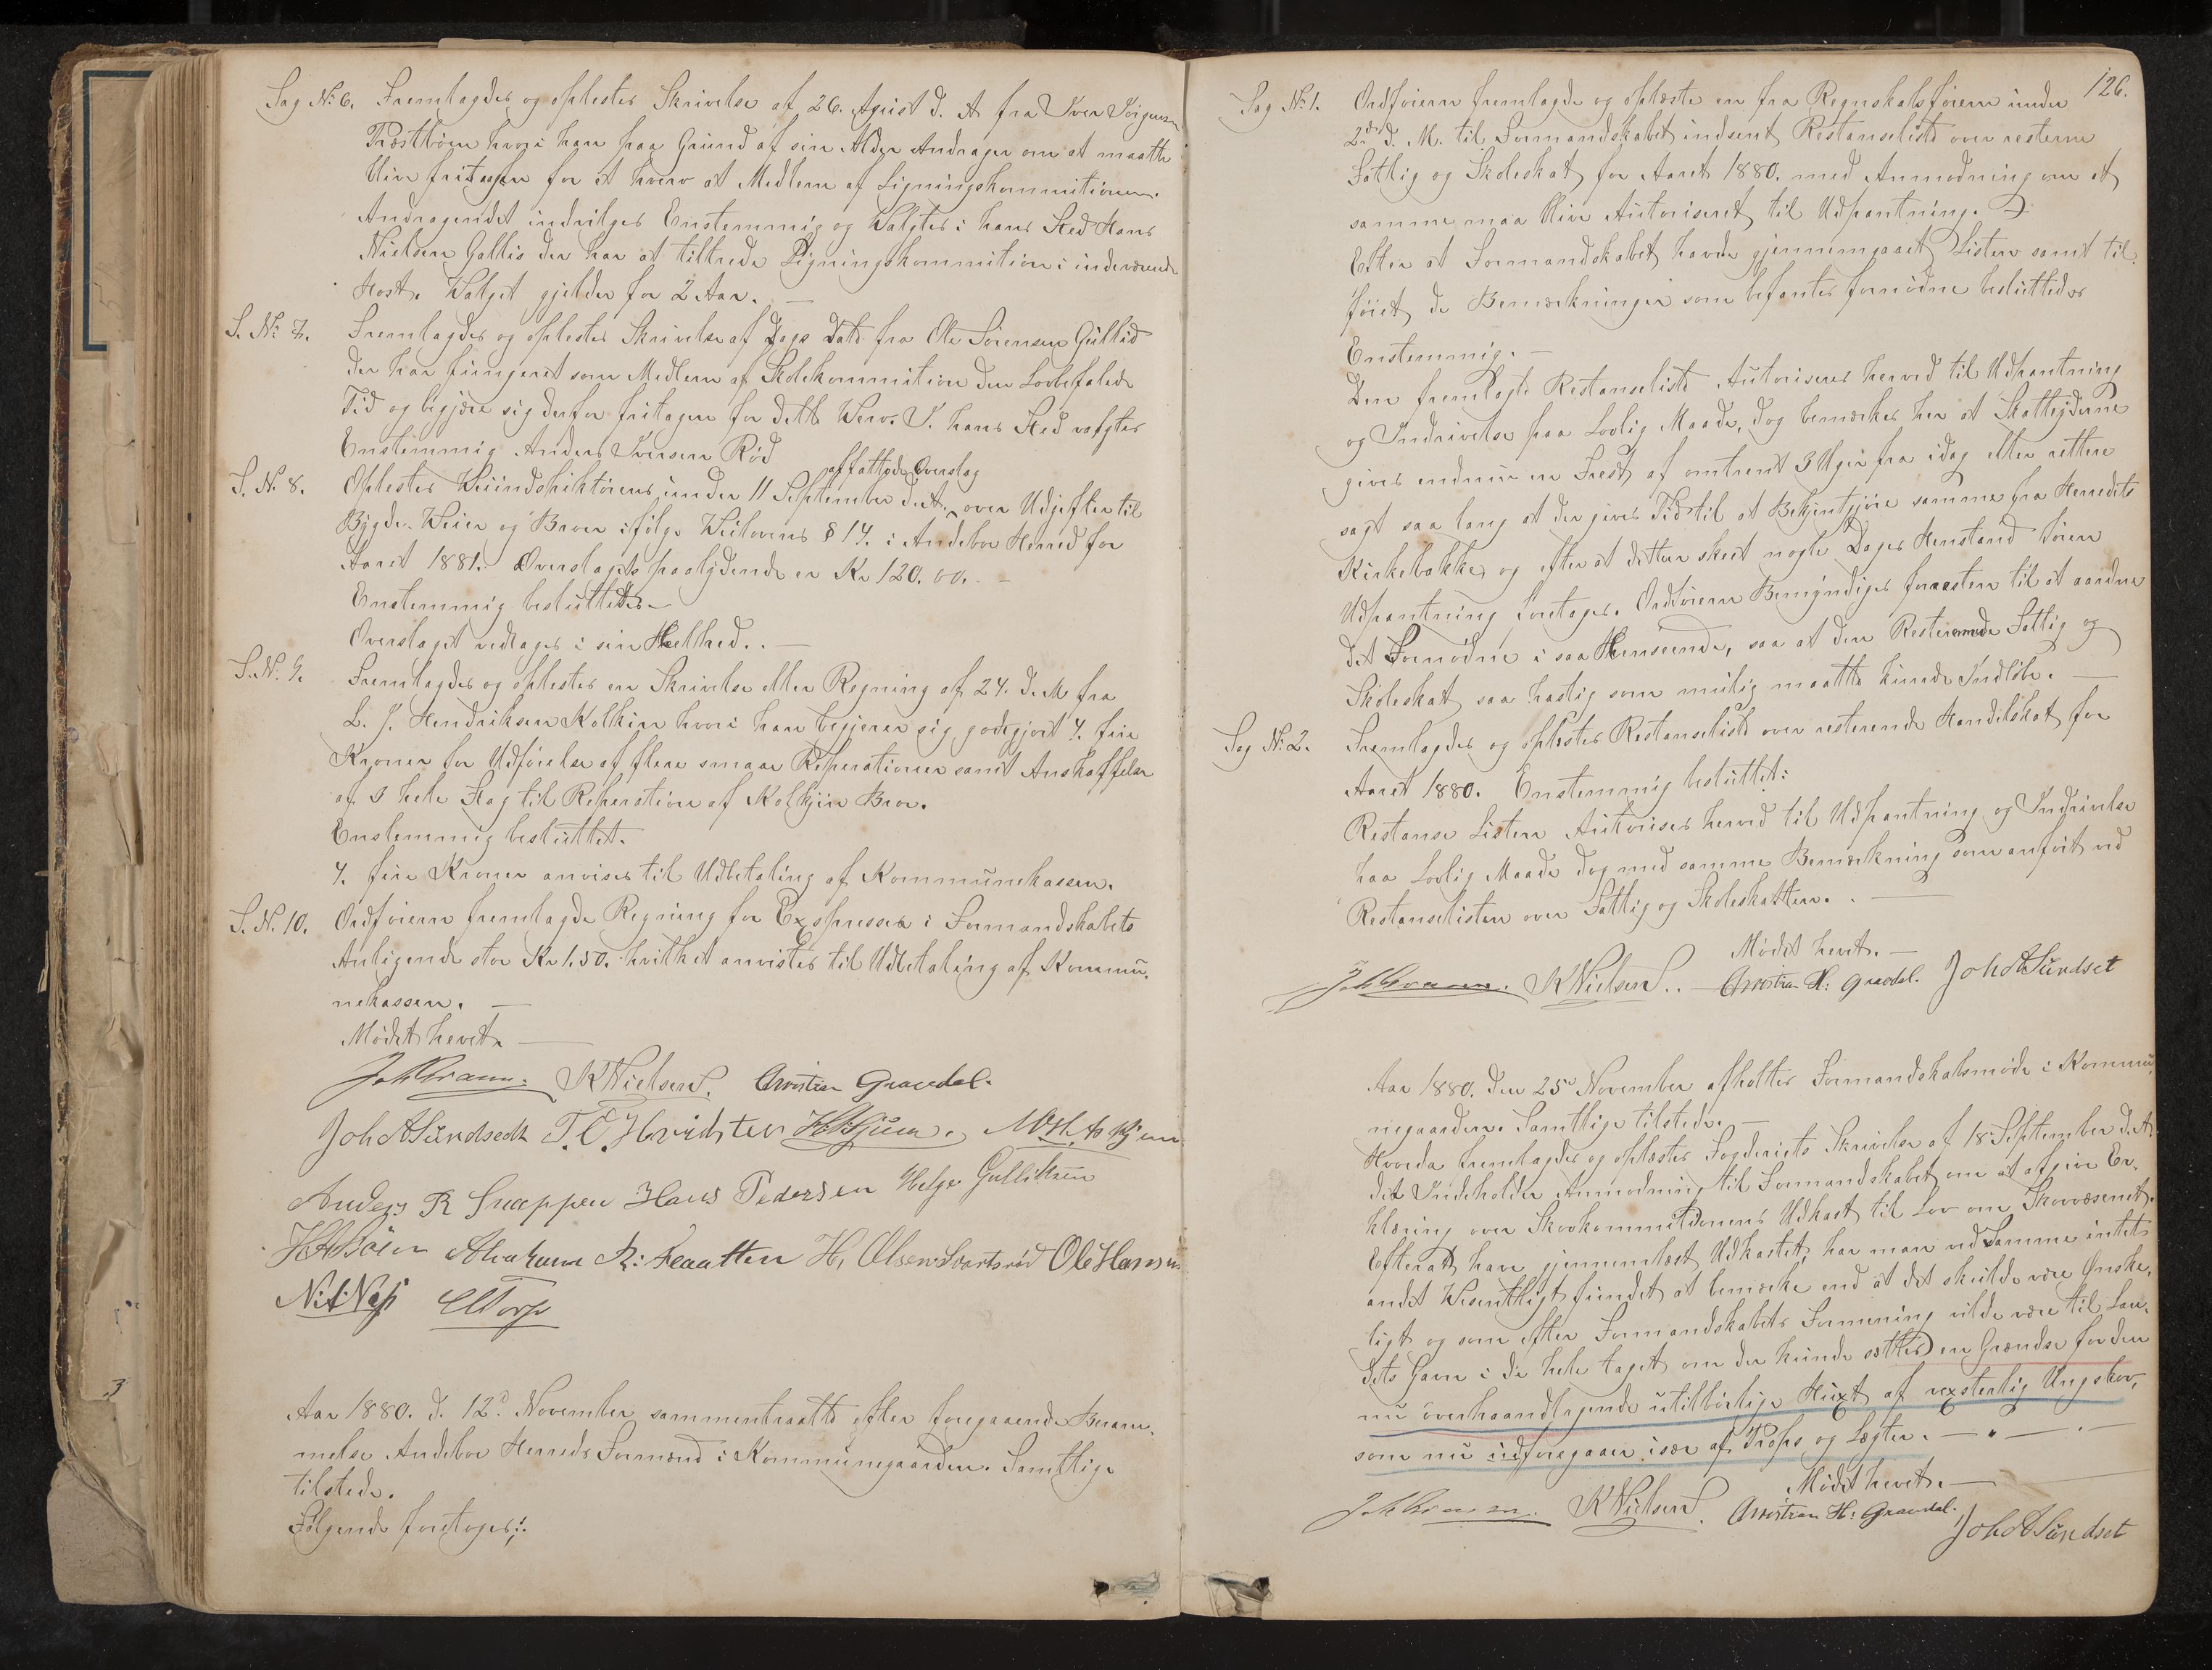 Sag No 6. Fremlagdes og oplestes Skrivelse af 26. August d. A fra Iver Jörgensen
Præstbøen hvori han paa Grund af sin Alder Andrager om at maatte
blive fritagen for et hverv at Medlem af Ligningskommitionen.
Andragendet indvilges Enstemmig og Valgtes i hans Sted Hans
Nielsen Gallis der har at tiltrede Ligningskommition i indeværende
Høst. Valget gjelder for 2 Aar. —
S. No 7. Fremlagdes og oplestes Skrivelse af Dags Dato fra Ole Sörensen Gullid
der har fungeret som Medlem af Skolekommition den Lovbefalede
Tid og begjære sig derfor fritagen for dette Verv. I hans Sted valgtes
Enstemmig Anders Iversen Röd
affattede Overslag
S. N. 8. Oplestes Veiindspektörens under 11 September d. A. over Udgifter til
Bygde-Veier og Broer ifölge Veilovens § 14. i Andebo Herred for
Aaret 1881. Overslagets paalydende er Kr 120.00. —
Enstemmig besluttedes. —
Overslaget vedtages i sin Helhed. . —
S. N. 9. Fremlagdes og oplestes en Skrivelse eller Regning af 24. d. M fra
L. J. Hendriksen Kolkin hvori han begjærer sig godtgjort 4. fire
Kroner for Udförelse af flere smaae Reperationer samt Anskaffelse
af 3 hele Flag til Reperation af Kolkjin Bro.
Enstemmig besluttet.
4. fire Kroner anvises til Udbetaling af Kommunekassen.
S. N. 10. Ordföreren fremlagde Regning for Expresser i Formandskabets
Anligende stor Kr 1.50. hvilket anvistes til Udbetaling af Kommu-
nekassen. —
Mödet hevet. —
K Nielsen. Christian Gravdal.
Joh A Sundsedt T. C. Hvidsten
Anders R Snappen Hans Pedersen Helge Gulliksen
H A Böen Abraham R: Flaatten H, Olsen Svartsröd Ole Hansen
Torp
Aar 1880. d. 12d November sammentraatte efter foregaaende Beram-
melse Andebo Herreds Formænd i Kommunegaarden. Samtlige
tilstede.
Fölgende foretoges:
126.
Sag No 1. Ordföreren fremlagde og oplæste en fra Regnskabsföreren under
2de d. M. til Formandskabet indsent Restanseliste over resterne
Fattig og Skoleskat for Aaret 1880. med Anmodning om at
samme maa blive Autoriseret til Udpantning.
Efter at Formandskabet havde gjennemgaaet Listen samt til-
föiet de Bemærkninger som befantes fornödne besluttedes
Enstemmig. —
Den fremlagte Restanseliste Autoriseres herved til Udpantning
og Inddrivelse paa Lovlig Maade, dog bemærkes her at Skatteyderne
gives endnu en Frest af omtrent 3 Uger fra idag eller rettere
sagt saa lang at der gives Tid til at Bekjentgjöre samme fra Herredets
Kirkebakke, og efter at dette er skeet nogle Dages Henstand förend
Udpantning foretages. Ordföreren Bemyndiges foresten til at aardne
det Fornödne i saa Henseende, saa at den Resterende Fattig og
Skoleskat saa hastig som mulig maatte kunde Indlöbe. —
Sag No 2. Fremlagdes og oplæstes Restanseliste over resterende Handelskat for
Aaret 1880. Enstemmig besluttet:
Restanse Listen Autoriseres herved til Udpantning og Inddrivelse
paa Lovlig Maade dog med samme Bemærkning som anföit ved
Restanselisten over Fattig og Skoleskatten. . —
Mödet hevet. —
K Nielsen. . Christian H: Gravdal. Joh A Sundset
Aar 1880. den 25d November afholtes Formandskabsmöde i Kommu-
negaarden. Samtlige tilstede. —
Hvorda fremlagdes og oplæstes Fogderiets Skrivelse af 18 September d. A.
det Indeholder Anmodning til Formandskabet om at afgive Er-
klæring over Skovkommitionens Udkast til Lov om Skovvæsenet.
Efter at have gjennemlæst Udkastet, har man ved Samme intet
andet Vesentligt fundet at bemærke end at det skulde være Önske-
ligt og som efter Formandskabets Formening vilde være til Lan-
dets Gavn i de hele taget om der kunde sættes en Grændse for den
nu overhaandtagende utilbörlige Huxt af vexsterlig Ungskov,
som nu udforegaaer især af Props og Lægter. —
Mödet hevet. —
K Nielsen. Christian H: Gravdal.
Joh A Sundset